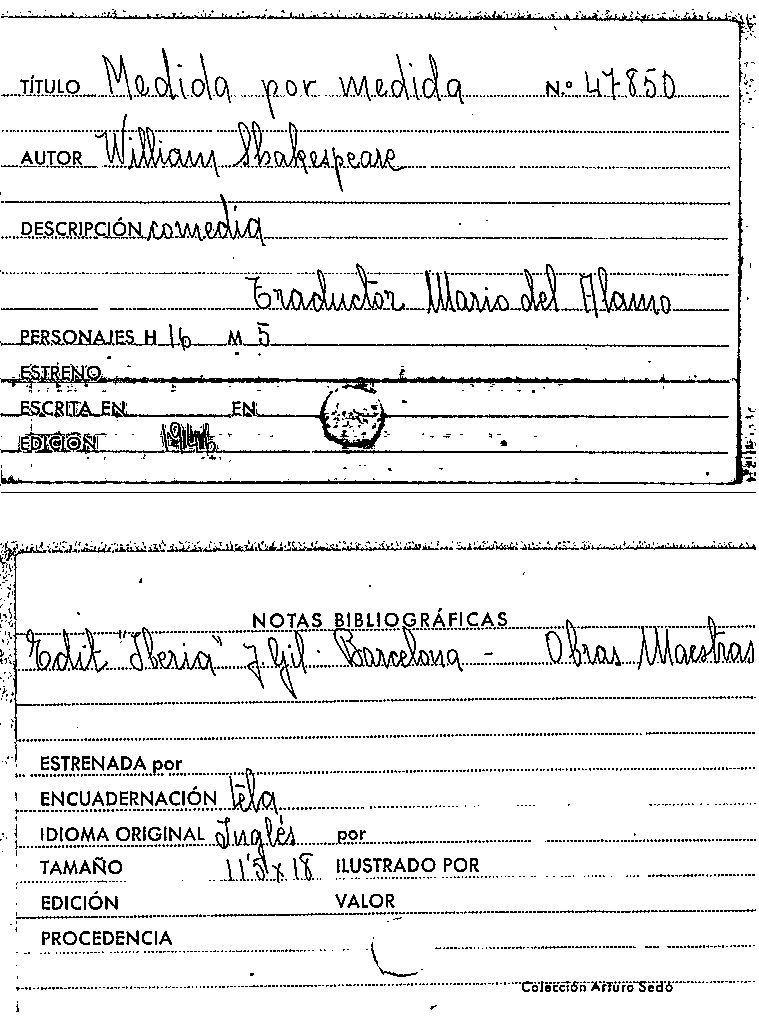 TÍTULO Medida por medida N.º 47850
AUTOR William Shakespeare
DESCRIPCIÓN comedia
Traductor Mario del Alamo
PERSONAJES H 16 M 5
ESTRENO
ESCRITA EN EN
EDICIÓN
NOTAS BIBLIOGRÁFICAS
Edit "Iberia" J. Gil - Barcelona - Obras Maestras
ESTRENADA por
ENCUADERNACIÓN tela
IDIOMA ORIGINAL Inglés por
TAMAÑO 11'5 x 18 ILUSTRADO POR
EDICIÓN VALOR
PROCEDENCIA
Colección Arturo Sedó